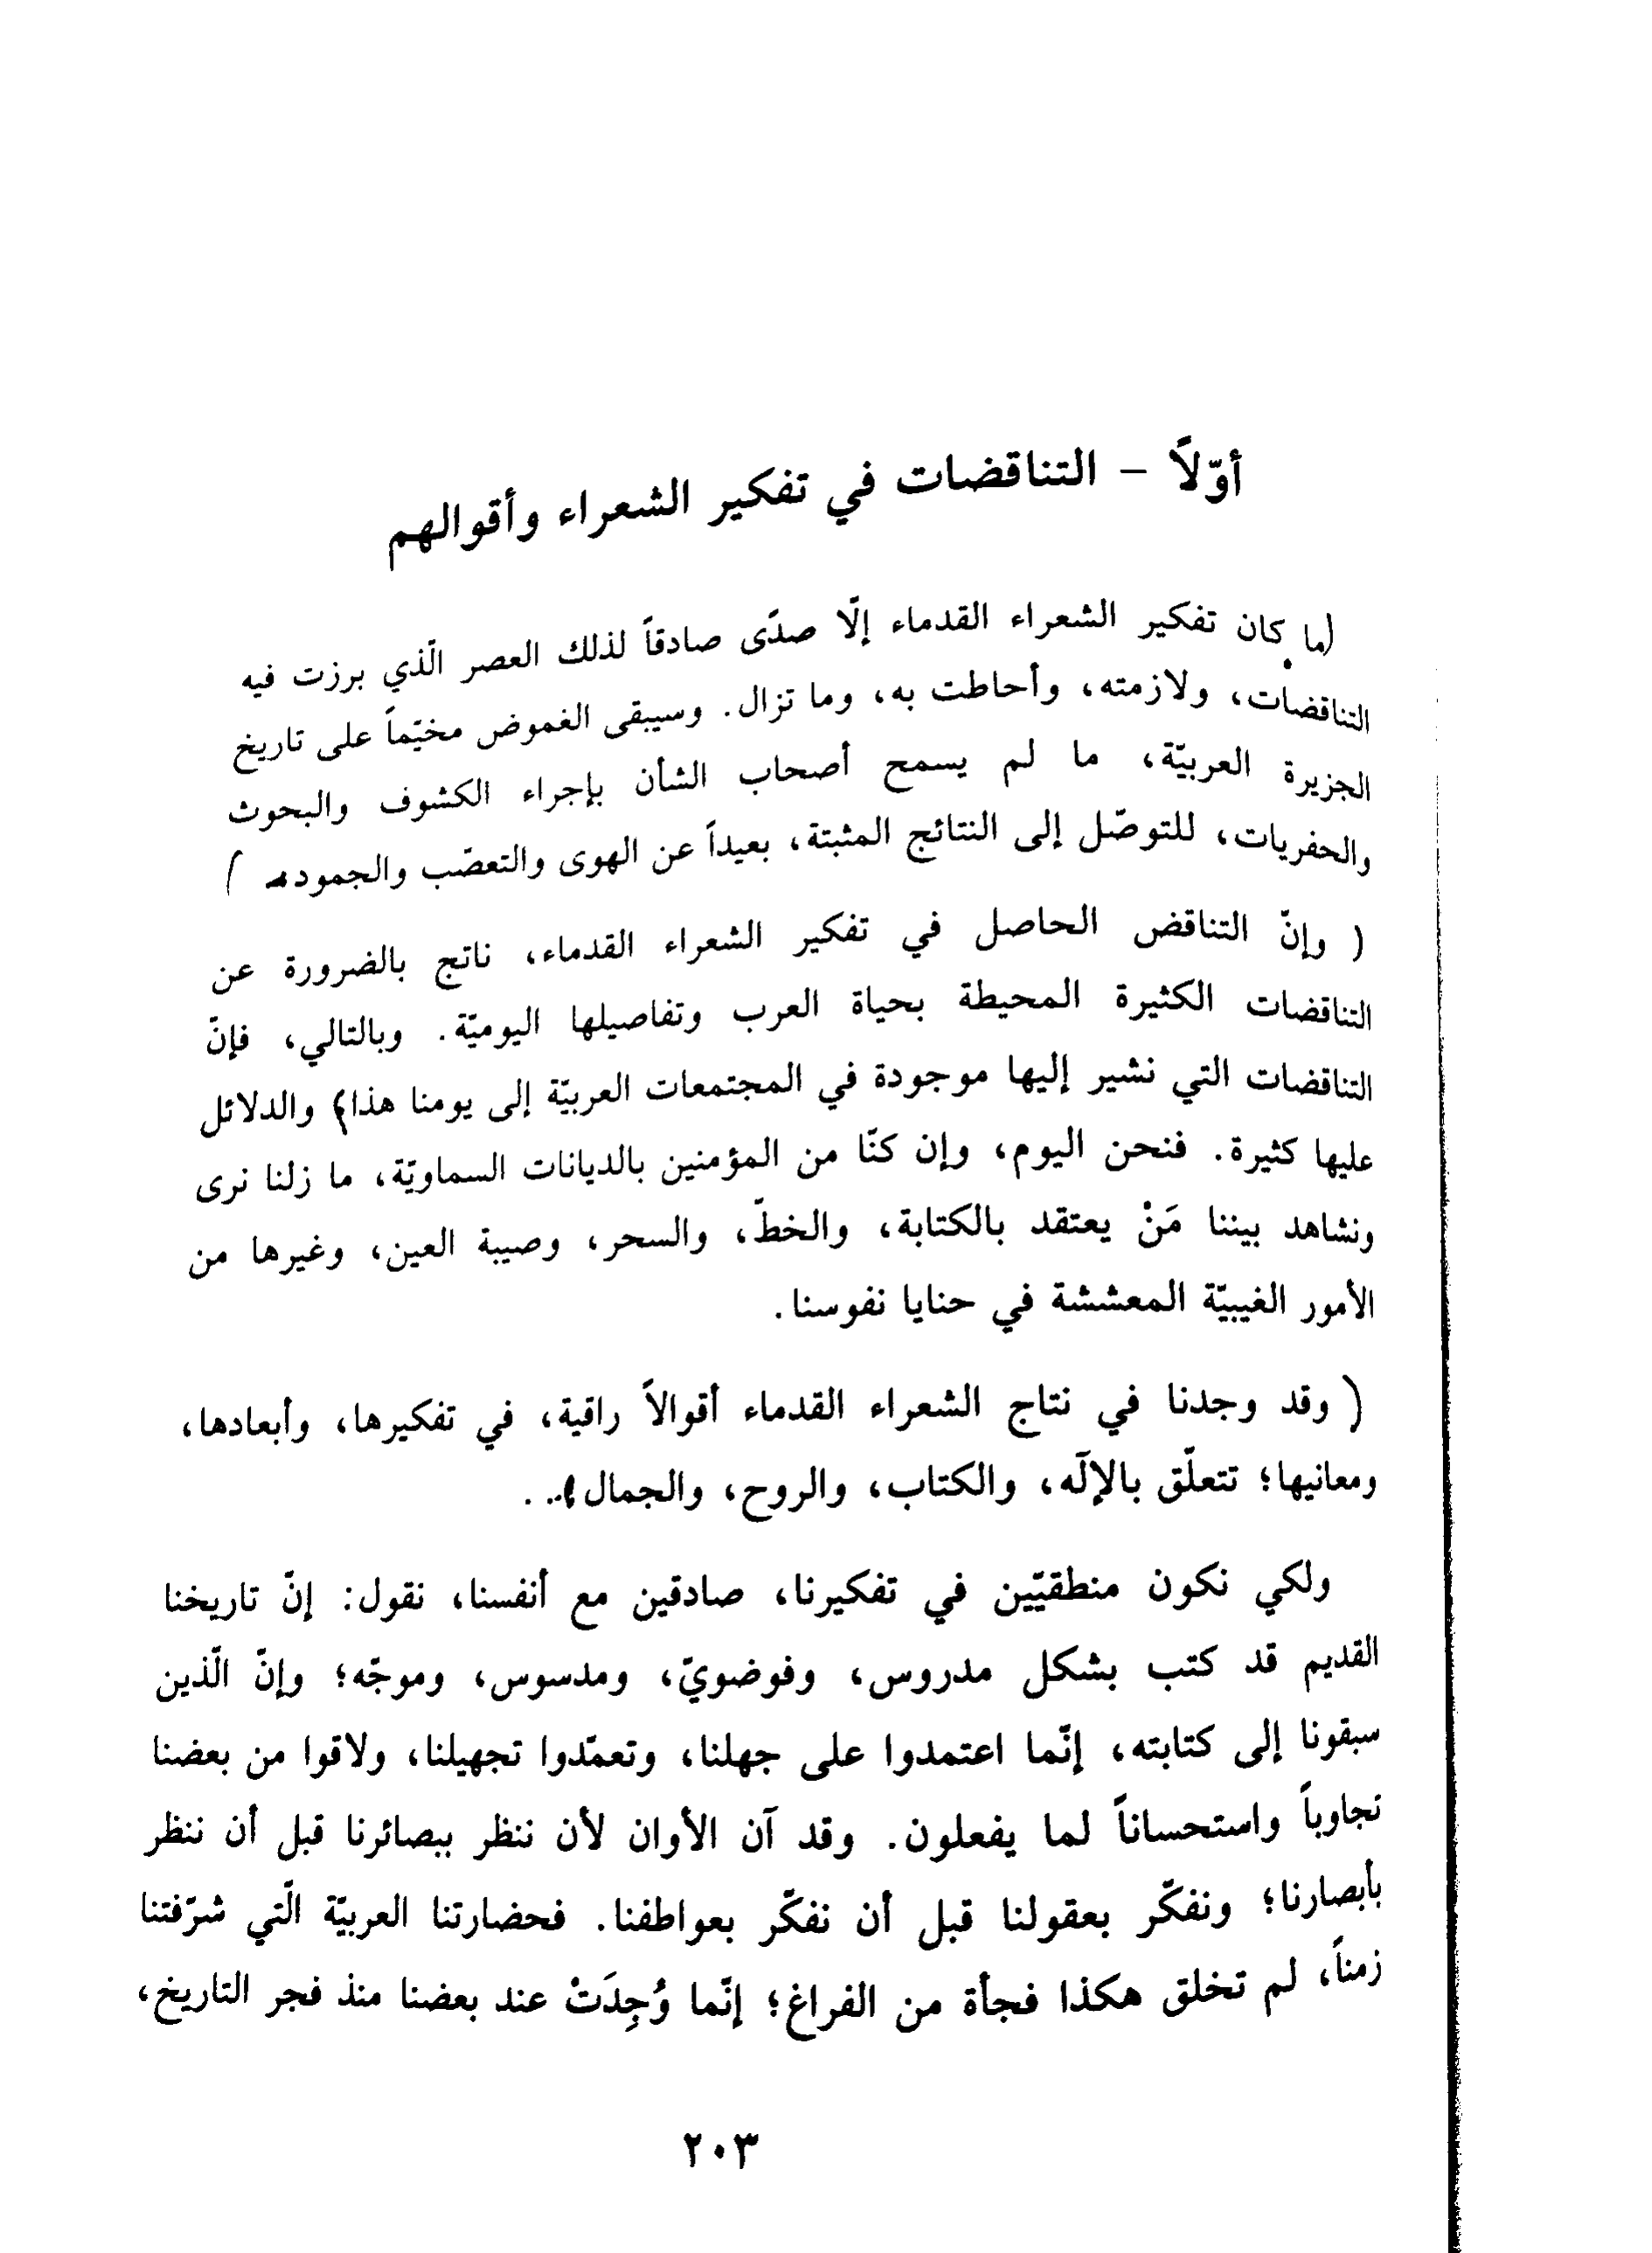 أوّلاً – التناقضات في تفكير الشعراء وأقوالهم
(ما كان تفكير الشعراء القدماء إلّا صدًى صادقاً لذلك العصر الّذي برزت فيه
التناقضات، ولازمته، وأحاطت به، وما تزال. وسيبقى الغموض مخيّماً على تاريخ
الجزيرة العربيّة، ما لم يسمح أصحاب الشأن بإجراء الكشوف والبحوث
والحفريات، للتوصّل إلى النتائج المثبتة، بعيداً عن الهوى والتعصّب والجمود. )
( وإنّ التناقض الحاصل في تفكير الشعراء القدماء، ناتج بالضرورة عن
التناقضات الكثيرة المحيطة بحياة العرب وتفاصيلها اليوميّة. وبالتالي، فإنّ
التناقضات التي نشير إليها موجودة في المجتمعات العربيّة إلى يومنا هذا) والدلائل
عليها كثيرة. فنحن اليوم، وإن كنّا من المؤمنين بالديانات السماويّة، ما زلنا نرى
ونشاهد بيننا مَنْ يعتقد بالكتابة، والخطّ، والسحر، وصيبة العين، وغيرها من
الأمور الغيبيّة المعششة في حنايا نفوسنا.
( وقد وجدنا في نتاج الشعراء القدماء أقوالاً راقية، في تفكيرها، وأبعادها،
ومعانيها؛ تتعلّق بالإلَه، والكتاب، والروح، والجمال)...
ولكي نكون منطقيّين في تفكيرنا، صادقين مع أنفسنا، نقول: إنّ تاريخنا
القديم قد كتب بشكل مدروس، وفوضويّ، ومدسوس، وموجّه؛ وإنّ الّذين
سبقونا إلى كتابته، إنّما اعتمدوا على جهلنا، وتعمّدوا تجهيلنا، ولاقوا من بعضنا
تجاوباً واستحساناً لما يفعلون. وقد آن الأوان لأن ننظر ببصائرنا قبل أن ننظر
بأبصارنا؛ ونفكّر بعقولنا قبل أن نفكّر بعواطفنا. فحضارتنا العربيّة الّتي شرّفتنا
زمناً، لم تخلق هكذا فجأة من الفراغ؛ إنّما وُجِدَتْ عند بعضنا منذ فجر التاريخ،
٢٠٣